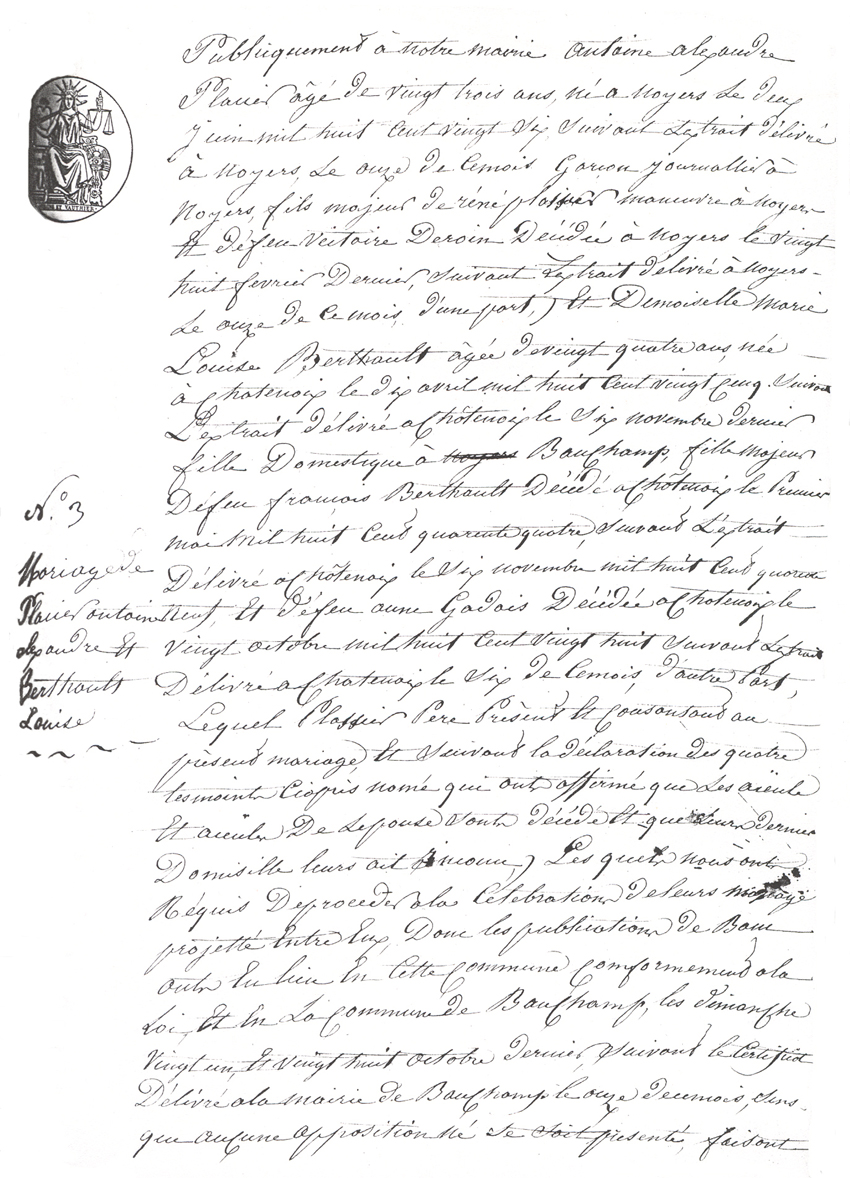 Publiquement à notre mairie antoine alexandre
Plasier âgé de vingt trois ans, né a noyers le deux
juin mil huit cent vingt six suivant L'extrait délivré
à noyers, le onze de cemois garcon journallier à
noyers, fils majeur de réné plassier manœuvre à noyers
Et défeu Victoire Deroin Décédée à noyers le vingt
huit fevrier Dernier, suivant L'extrait délivré à noyers
Le onze de ce mois, d'une part,) Et Demoiselle Marie
Louise Berthault âgée de vingt quatre ans, née
à Chatenoix le dix avril mil huit cent vingt cinq. Suivant
L'extrait délivré a Châtenoix le six novembre dernier
fille Domestique à noyers Bauchamp, fille majeur
Défeu françois Berthault Décédé a Châtenoix le Premier
mai mil huit cent quarente quatre, suivant L'extrait
N.º 3
Délivré a Châtenoix le six novembre mil huit cent quarente
Mariage de
Plasier antoine
alexandre Et
Berthault
Louise
neuf, Et défeu anne Gadois Décédée a Chatenoix le
vingt octobre mil huit cent vingt huit suivant L'extrait
Délivré a Chatenoix le six de cemois, d'autre Part,
Lequel Plassier Pere Présent Et Consentant au
présent mariage, Et suivant la déclaration des quatre
tesmoints Ciapris nomé qui ont affirmé que Les aïeuls
Et aïeules De Lepouse sont décédé Et que Leurs dernier
Domisille leurs ait inconu,) Les quels nous ont
Réquis De proceder a la Célébration de leurs mariage
projetté Entre Eux, Donc les publications de Banc
ont Eu lieu En Cette Commune Comformement a la
Loi, Et En La Commune de Bauchamp, les dimanche
vingt un, Et vingt huit octobre dernier, suivant le Certificat
Délivré a la mairie de Bauchamp le onze decemois, sans
que aucune apposition né se soit presenté, faisant